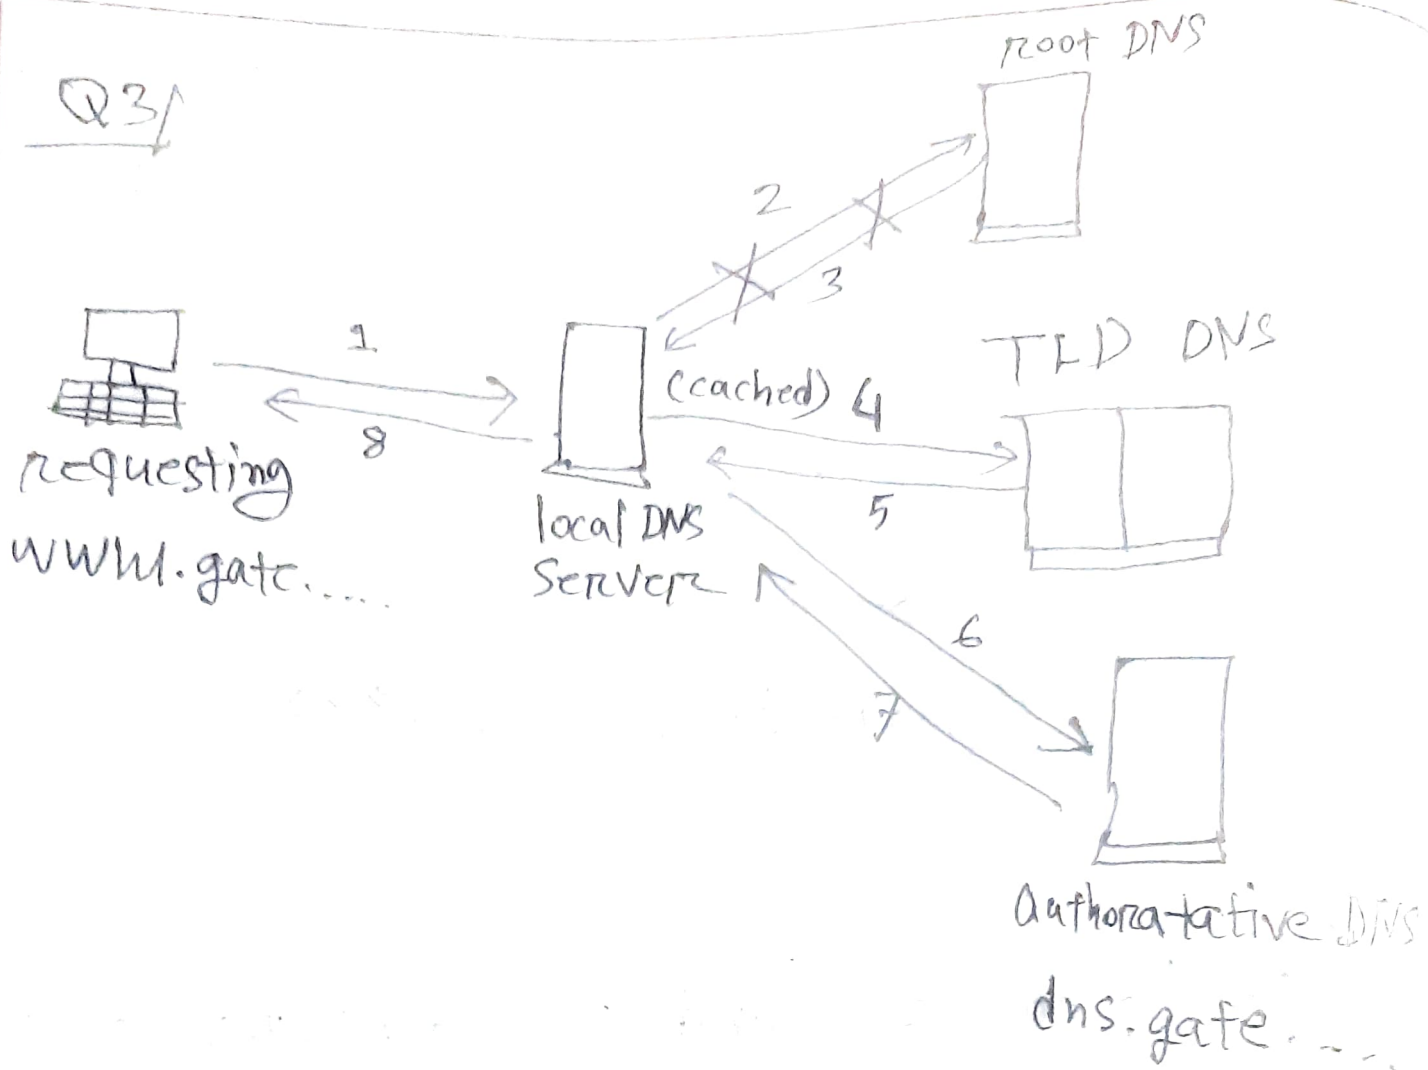 Q3/
root DNS
2
3
TLD DNS
1
(cached) 4
8
5
requesting
www.gate.....
local DNS
Server
6
7
Authoratative DNS
dns.gate.....